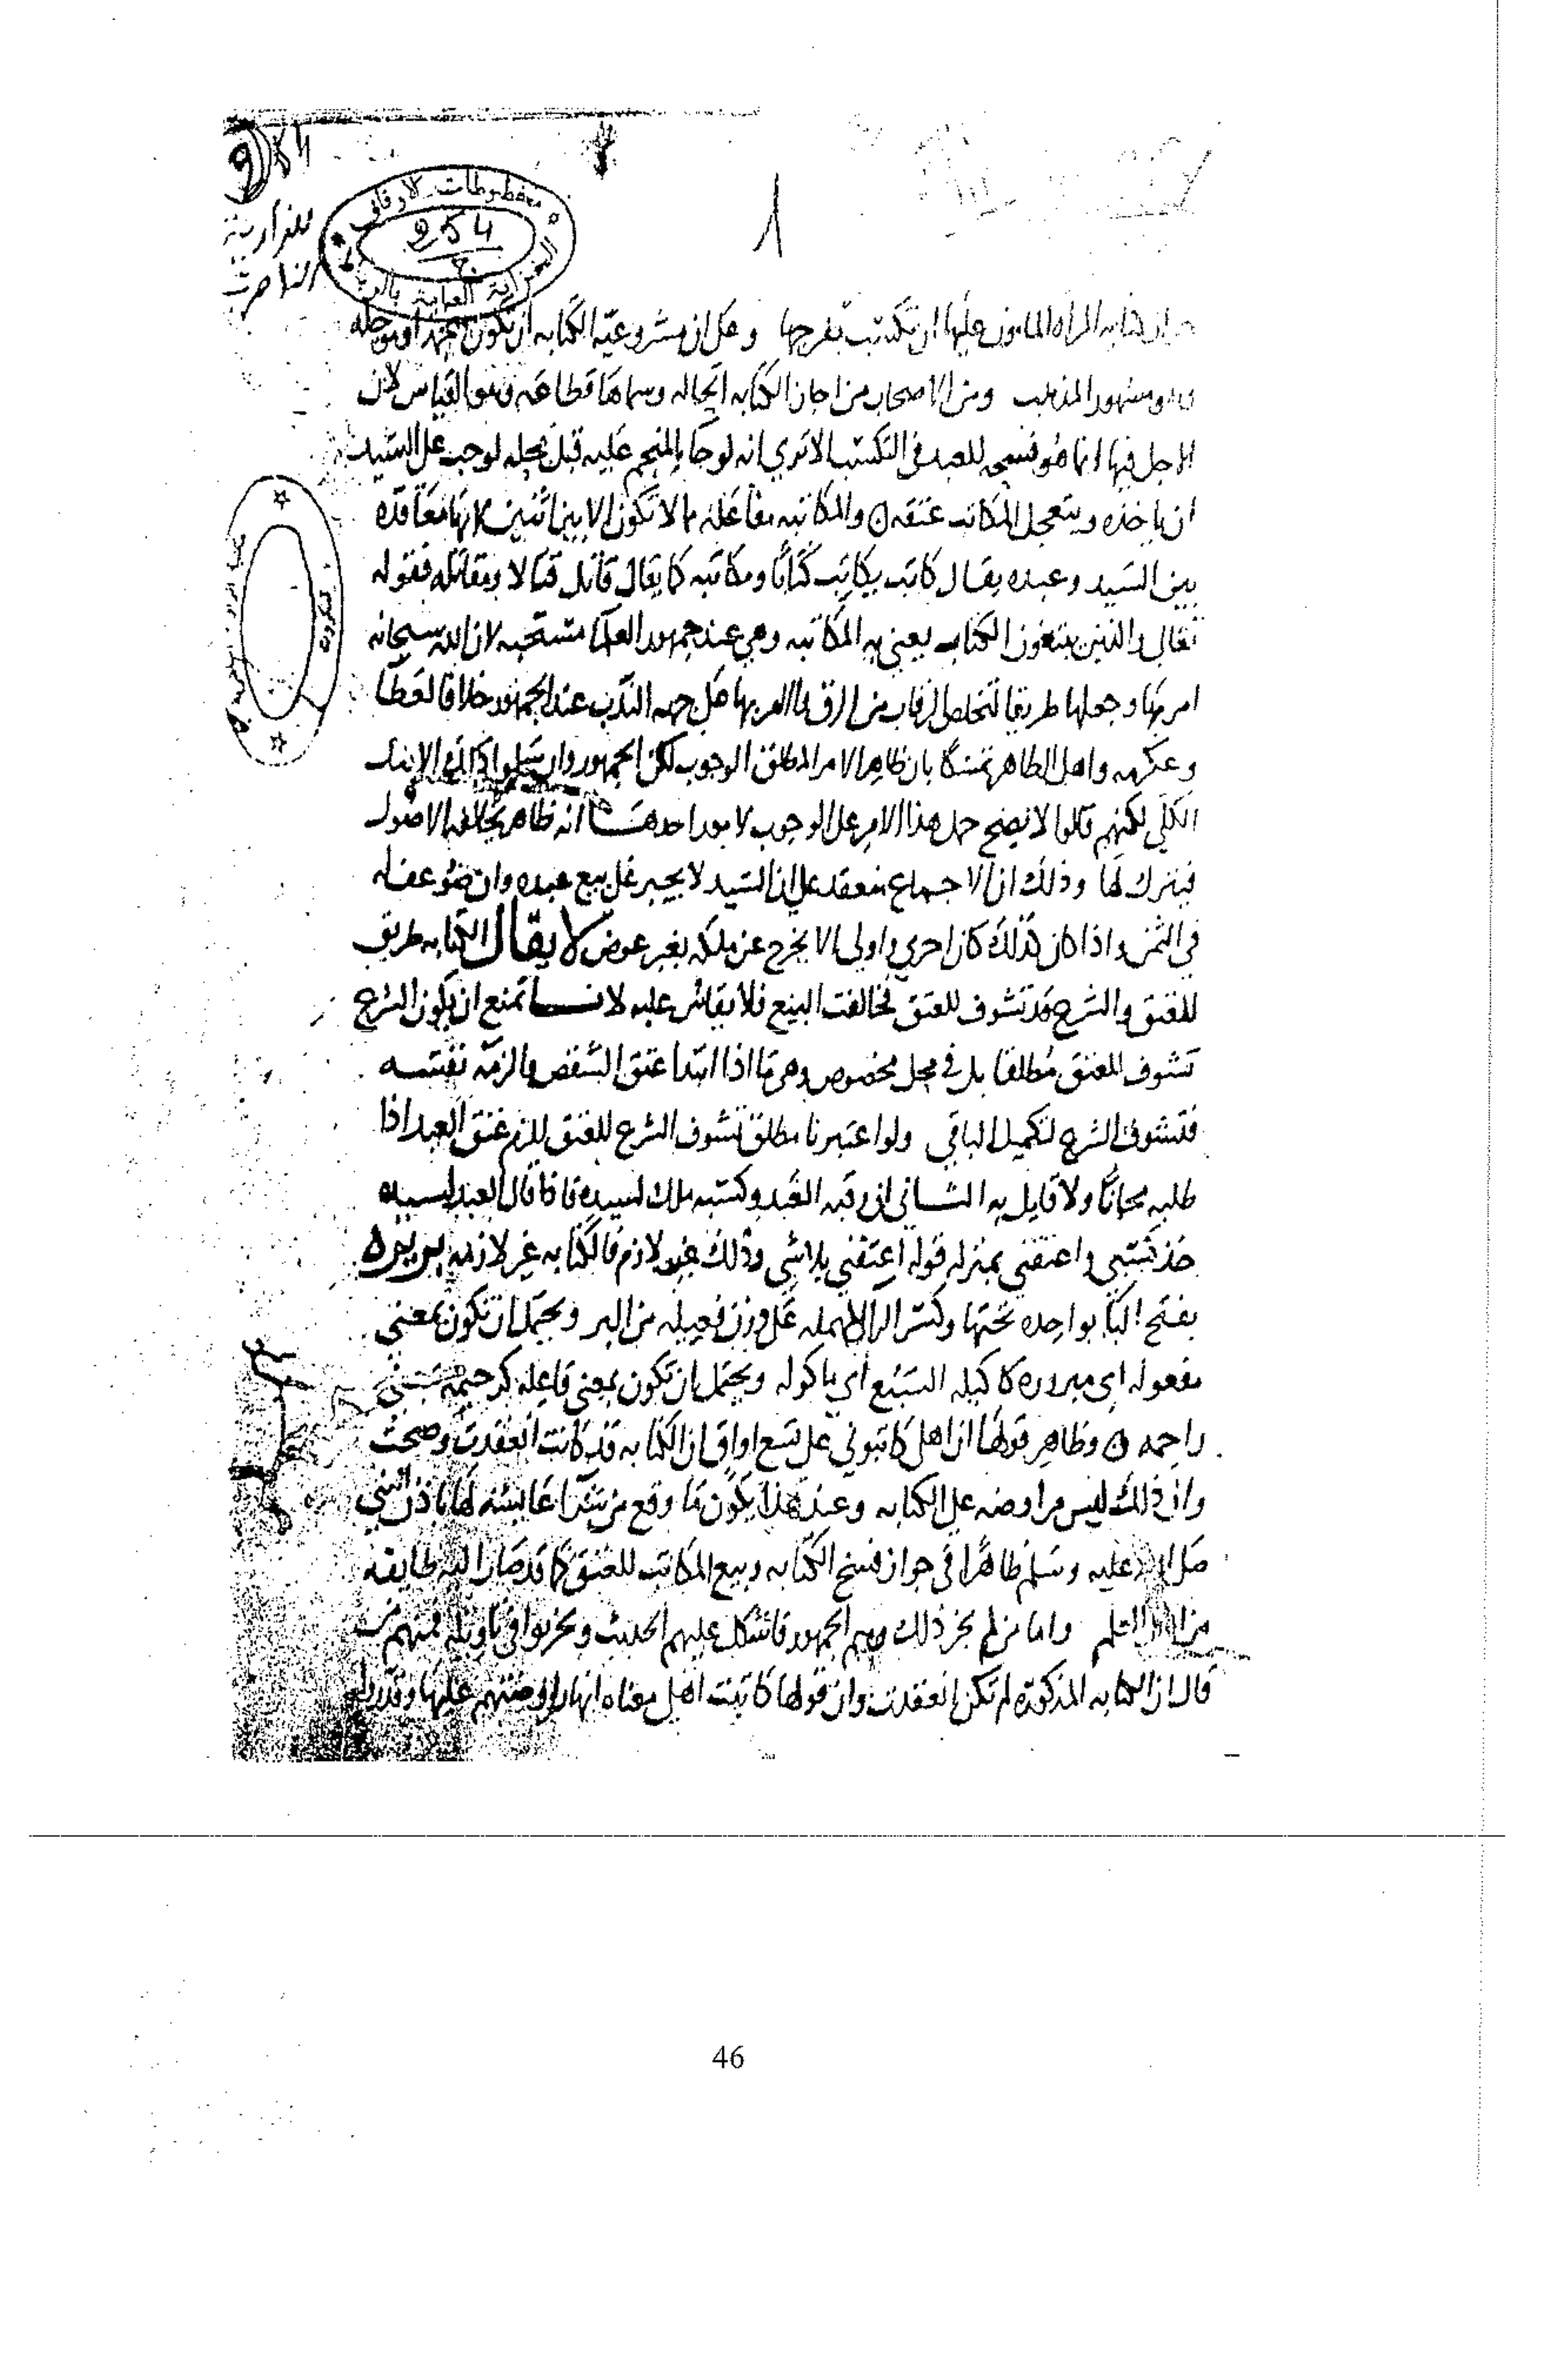 254
مخطوطات الاوقاف
254
ج
الخزانة العامة بالرباط
1
المراه المامون عليها ان تكتسب بفرجها وعلى ان مشروعيه الكتابه ان تكون موجله
وهو مشهور المذهب ومن الاصحاب من اجاز الكتابه الحاله وسماها قطاعه وهو القياس لان
الاجل فيها انما هو فسحه للعبد في التكسب الا تري انه لو جا بالمنجم عليه قبل محله لوجب على السيد
ان ياخذه ويتعجل المكاتب عتقه ن والمكاتبه مفاعله مما لا تكون الا بين اثنين لانها معاقده
بين السيد وعبده يقال كاتب يكاتب كتابا ومكاتبه كما يقال قاتل قتالا ومقاتله فقوله
تعالى والذين يبتغون الكتاب يعني به المكاتبه وهي عند جمهور العلما مستحبه لان الله سبحانه
امر بها وجعلها طريقا لتخلص الرقاب من الرق فالامر بها على جهه الندب عند الجمهور خلافا لعطا
وعكرمه واهل الظاهر تمسكا بان ظاهر الامر المطلق الوجوب لكن الجمهور وان سلموا ذلك الاصل
الكلي لكنهم قالوا لا يصح حمل هذا الامر على الوجوب لامور احدهما انه ظاهر يخالف الاصول
فيترك لها وذلك ان الاجماع منعقد على ان السيد لا يجبر على بيع عبده وان ضوعف له
في الثمن واذا كان كذلك كان احري واولى الا يخرج عن ملكه بغير عوض لا يقال الكتابه طريق
للعتق والشرع قد تشوف للعتق فخالفت البيع فلا يقاس عليه لانا نمنع ان يكون الشرع
تشوف للعتق مطلقا بل في محل مخصوص وهو ما اذا ابتدا عتق الشقص فالزمه نفسه
فتشوف الشرع لتكميل الباقي ولو اعتبرنا مطلق تشوف الشرع للعتق للزم عتق العبد اذا
طلبه مجانا ولا قايل به الثاني ان رقبه العبد وكسبه ملك لسيده فاذا قال العبد لسيده
خذ كسبي واعتقني بمنزله قوله اعتقني بلا شي وذلك غير لازم فالكتابه غير لازمه بريره
بفتح البا بواحده تحتها وكسر الرا المهمله على وزن فعيله من البر ويحتمل ان تكون بمعنى
مفعوله اي مبروره كاكيله السبع اي ماكوله ويحتمل ان تكون بمعنى فاعله كرحيمه بمعنى
راحمه ن وظاهر قولها ان اهلي كاتبوني على تسع اواق ان الكتابه قد كانت انعقدت وصحت
وان ذلك ليس مراوضه على الكتابه وعند هذا يكون ما وقع من شرا عايشه لها باذن النبي
صلى الله عليه وسلم ظاهرا في جواز فسخ الكتابه وبيع المكاتب للعتق كما قد صار اليه طايفه
من اهل العلم واما من لم يجز ذلك وهم الجمهور فاشكل عليهم الحديث وتحزبوا في تاويله فمنهم من
قال ان الكتابه المذكوره لم تكن انعقدت وان قولها كاتبت اهلي معناه انها راوضتهم عليها وقدروا
46